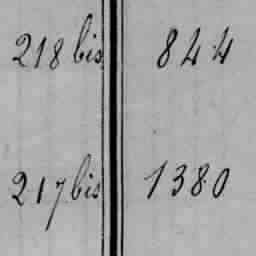 218 bis 844
217 bis 1380